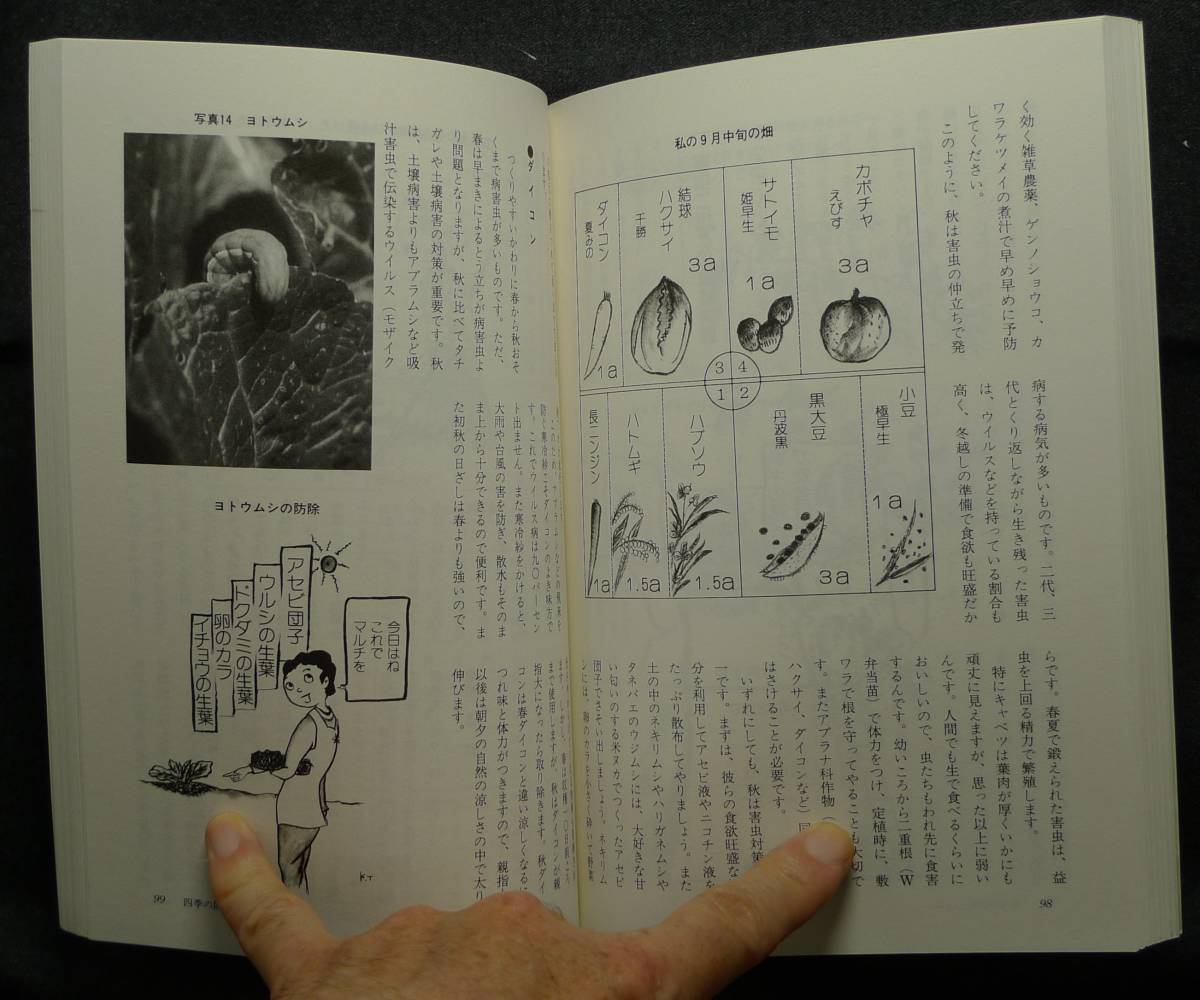 く効く雑草農薬、ゲンノショウコ、カ
ワラケツメイの煮汁で早め早めに予防
してください。
このように、秋は害虫の仲立ちで発
私の9月中旬の畑
カボチャ
えびす
3a
サトイモ
姫早生
1a
結球
ハクサイ
千勝
3a
ダイコン
夏みの
1a
3
4
1
2
小豆
極早生
1a
黒大豆
丹波黒
3a
ハブソウ
1.5a
ハトムギ
1.5a
長ニンジン
1a
病する病気が多いものです。二代、三
代とくり返しながら生き残った害虫
は、ウイルスなどを持っている割合も
高く、冬越しの準備で食欲も旺盛だか
らです。春夏で鍛えられた害虫は、益
虫を上回る精力で繁殖します。
特にキャベツは葉肉が厚くいかにも
頑丈に見えますが、思った以上に弱い
んです。人間でも生で食べるくらいに
おいしいので、虫たちもわれ先に食害
するんです。幼いころから二重根（W
弁当苗）で体力をつけ、定植時に、敷
ワラで根を守ってやることも大切で
す。またアブラナ科作物（
ハクサイ、ダイコンなど）
はさけることが必要です。
いずれにしても、秋は害虫対策
一です。まずは、彼らの食欲旺盛な
分を利用してアセビ液やニコチン液を
たっぷり散布してやりましょう。また
土の中のネキリムシやハリガネムシや
タネバエのウジムシには、大好きな甘
い匂いのする米ヌカでつくったアセビ
団子でさそい出しましょう。ネキリム
98
写真14 ヨトウムシ
●ダイコン
つくりやすいかわりに春から秋おそ
くまで病害虫が多いものです。ただ、
春は早まきによるとう立ちが病害虫よ
り問題となりますが、秋に比べてタチ
ガレや土壌病害の対策が重要です。秋
は、土壌病害よりもアブラムシなど吸
汁害虫で伝染するウイルス（モザイク
す。これでウイルス病は九〇パーセン
ト出ません。また寒冷紗をかけると、
大雨や台風の害を防ぎ、散水もそのま
ま上から十分できるので便利です。ま
た初秋の日ざしは春よりも強いので、
まで使用しますが、秋はダイコンが親
指大になったら取り除きます。秋ダイ
コンは春ダイコンと違い涼しくなるに
つれ味と体力がつきますので、親指
以後は朝夕の自然の涼しさの中で太り
伸びます。
ヨトウムシの防除
今日はね
これで
マルチを
アセビ団子
ウルシの生葉
ドクダミの生葉
卵のカラ
イチョウの生葉
K.T
99 四季の